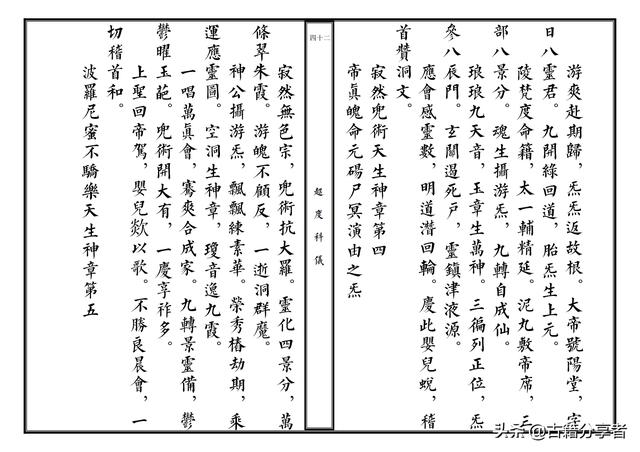 游爽赴期歸，炁炁返故根。大帝號陽堂，字
日八靈君。九開綠回道，胎炁生上元。
陵梵度命籍，太一輔精延。泥九敷帝席，三
部八景分。魂生攝游炁，九轉自成仙。
琅琅九天音，玉章生萬神。三徧列正位，炁
參八辰門。玄關遏死戶，靈鎮津液源。
應會感靈數，明道潛回輪。慶此嬰兒蛻，稽
首贊洞文。
寂然兜術天生神章第四
帝真魄命元碭尸冥演由之炁
四十二
超度科儀
寂然無色宗，兜術抗大羅。靈化四景分，萬
條翠朱霞。游魄不顧反，一逝洞群魔。
神公攝游炁，飄飄練素華。榮秀椿劫期，乘
運應靈圖。空洞生神章，瓊音逸九霞。
一唱萬真會，騫爽合成家。九轉景靈備，鬱
鬱曜玉葩。兜術開大有，一慶享祚多。
上聖回帝駕，嬰兒歘以歌。不勝良晨會，一
切稽首和。
波羅尼蜜不驕樂天生神章第五
头条 @古籍分享者